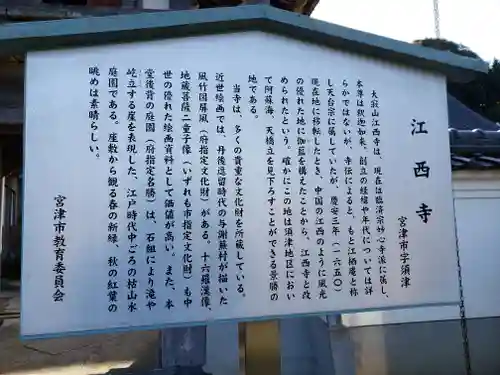 江西寺
宮津市字須津
大寂山江西寺は、現在は臨済宗妙心寺派に属し、
本尊は釈迦如来、創立の経緯や年代については詳
らかではないが、寺伝によると、もと江栖庵と称
し天台宗に属していたが、慶安三年（一六五〇）
現在地に移転したとき、中国の江西のように風光
の優れた地に伽藍を構えたことから、江西寺と改
められたという。確かにこの地は須津地区におい
て阿蘇海、天橋立を見下ろすことができる景勝の
地である。
当寺は、多くの貴重な文化財を所蔵している。
近世絵画では、丹後逗留時代の与謝蕪村が描いた
風竹図屏風（府指定文化財）がある。十六羅漢像、
地蔵菩薩二童子像（いずれも市指定文化財）も中
世の優れた絵画資料として価値が高い。また、本
堂後背の庭園（府指定名勝）は、石組により滝や
屹立する崖を表現した、江戸時代中ごろの枯山水
庭園である。座敷から観る春の新緑、秋の紅葉の
眺めは素晴らしい。
宮津市教育委員会